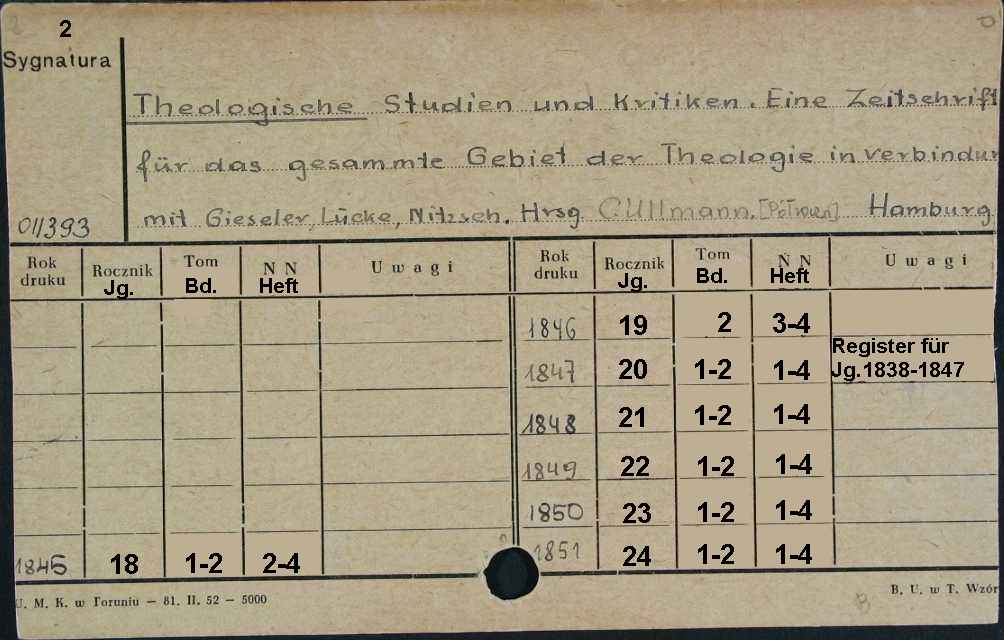 2
Sygnatura
Theologische Studien und Kritiken. Eine Zeitschrift
für das gesammte Gebiet der Theologie in Verbindun
mit Gieseler, Lücke, Nitzsch. Hrsg C. Ullmann. Hamburg
011393
Rok druku Rocznik Jg. Tom Bd. N N Heft Uwagi Rok druku Rocznik Jg. Tom Bd. N N Heft Uwagi
1846 19 2 3-4
1847 20 1-2 1-4 Register für Jg.1838-1847
1848 21 1-2 1-4
1849 22 1-2 1-4
1850 23 1-2 1-4
1845 18 1-2 2-4 1851 24 1-2 1-4
U. M. K. w Toruniu — 81. II. 52 — 5000
B. U. w T. Wzór
B